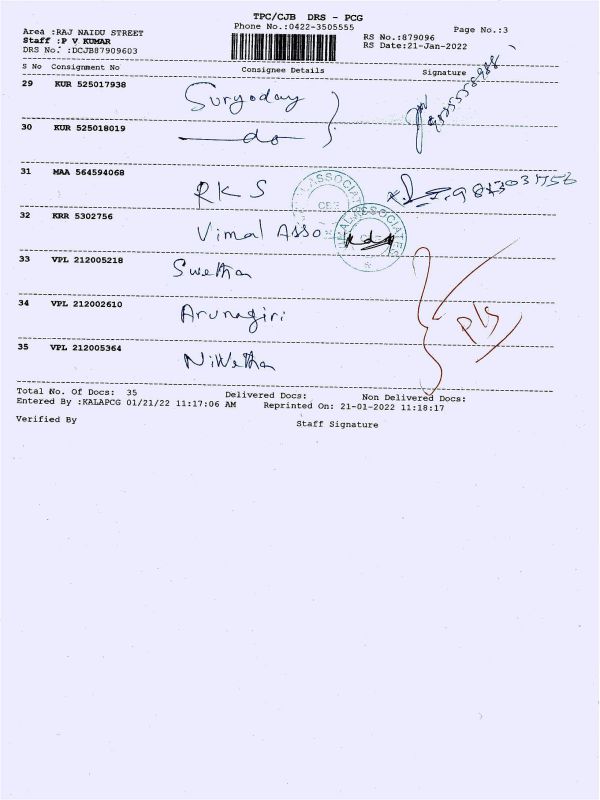 TPC/CJB DRS - PCG
Phone No.:0422-3505555
Page No.:3
Area :RAJ NAIDU STREET
Staff :P V KUMAR
DRS No. :DCJB87909603
RS No.:879096
RS Date:21-Jan-2022
S No Consignment No Consignee Details Signature
29 KUR 525017938 Suryoday
30 KUR 525018019 do
31 MAA 564594068 RKS
32 KRR 5302756 Vimal Asso
33 VPL 212005218 Swetha
34 VPL 212002610 Arunagiri
35 VPL 212005364 Nivetha
Total No. Of Docs: 35 Delivered Docs: Non Delivered Docs:
Entered By :KALAPCG 01/21/22 11:17:06 AM Reprinted On: 21-01-2022 11:18:17
Verified By Staff Signature